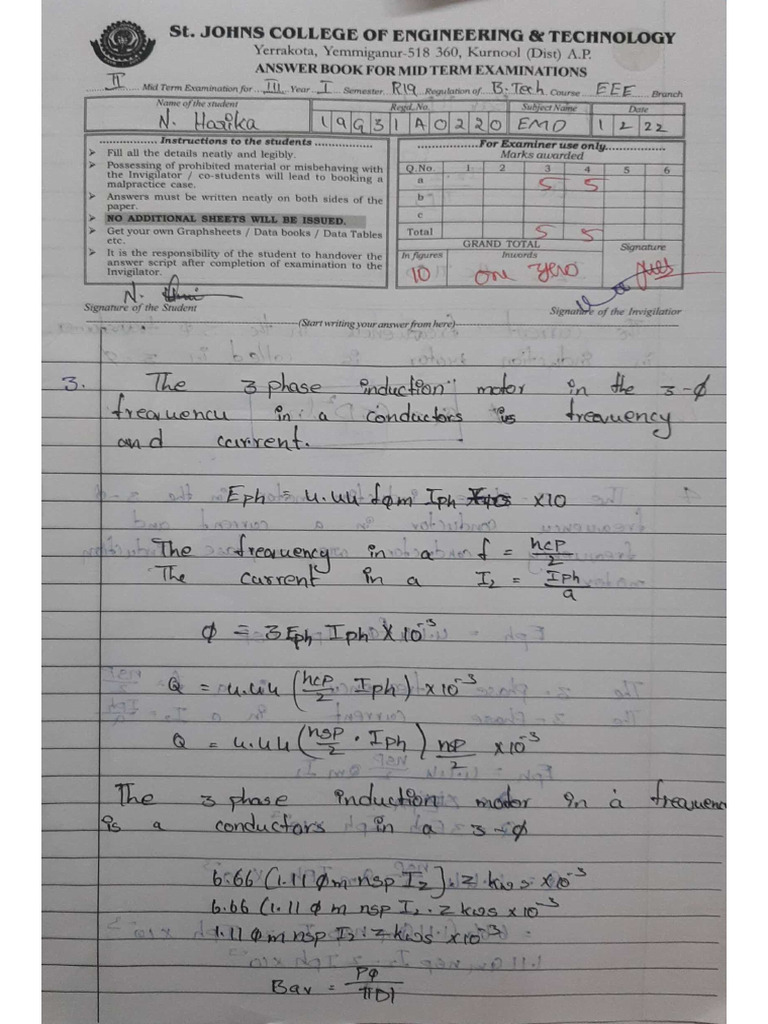 St. JOHNS COLLEGE OF ENGINEERING & TECHNOLOGY
Yerrakota, Yemmiganur-518 360, Kurnool (Dist) A.P.
ANSWER BOOK FOR MID TERM EXAMINATIONS
II Mid Term Examination for III Year I Semester R19 Regulation of B.Tech Course EEE Branch
Name of the student Regd. No. Subject Name Date
N. Harika 19G31A0220 EMD 1 2 22
Instructions to the students
Fill all the details neatly and legibly.
Possessing of prohibited material or misbehaving with
the Invigilator / co-students will lead to booking a
malpractice case.
Answers must be written neatly on both sides of the
paper.
NO ADDITIONAL SHEETS WILL BE ISSUED.
Get your own Graphsheets / Data books / Data Tables
etc.
It is the responsibility of the student to handover the
answer script after completion of examination to the
Invigilator.
For Examiner use only
Marks awarded
Q.No. 1 2 3 4 5 6
a 5 5
b
c
Total 5 5
GRAND TOTAL Signature
In figures Inwords
10 one zero
N.
Signature of the Student Signature of the Invigilatior
(Start writing your answer from here)
3. The 3 phase induction motor in the 3-φ
frequency in a conductors is frequency
and current.
Eph = 4.44 fφm Iph ×10
The frequency in a f = ncp/2
The current in a I2 = Iph/a
φ = 3 Eph Iph × 10⁻³
Q = 4.44 (ncp/2 Iph) × 10⁻³
Q = 4.44 (nsp/2 · Iph) np/2 × 10⁻³
The 3 phase induction motor in a frequenc
is a conductors in a 3-φ
6.66 (1.11 φm nsp I2) . z kws × 10⁻³
6.66 (1.11 φm nsp I2 . z kws × 10⁻³
1.11 φm nsp I2 . z kws × 10⁻³
Bav = Pφ/πDl